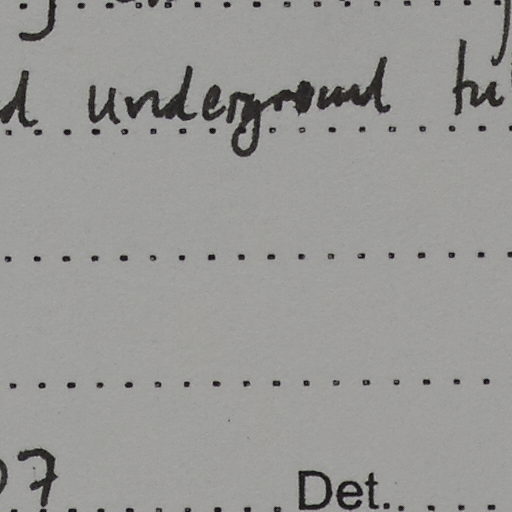 d underground tu
07 Det.